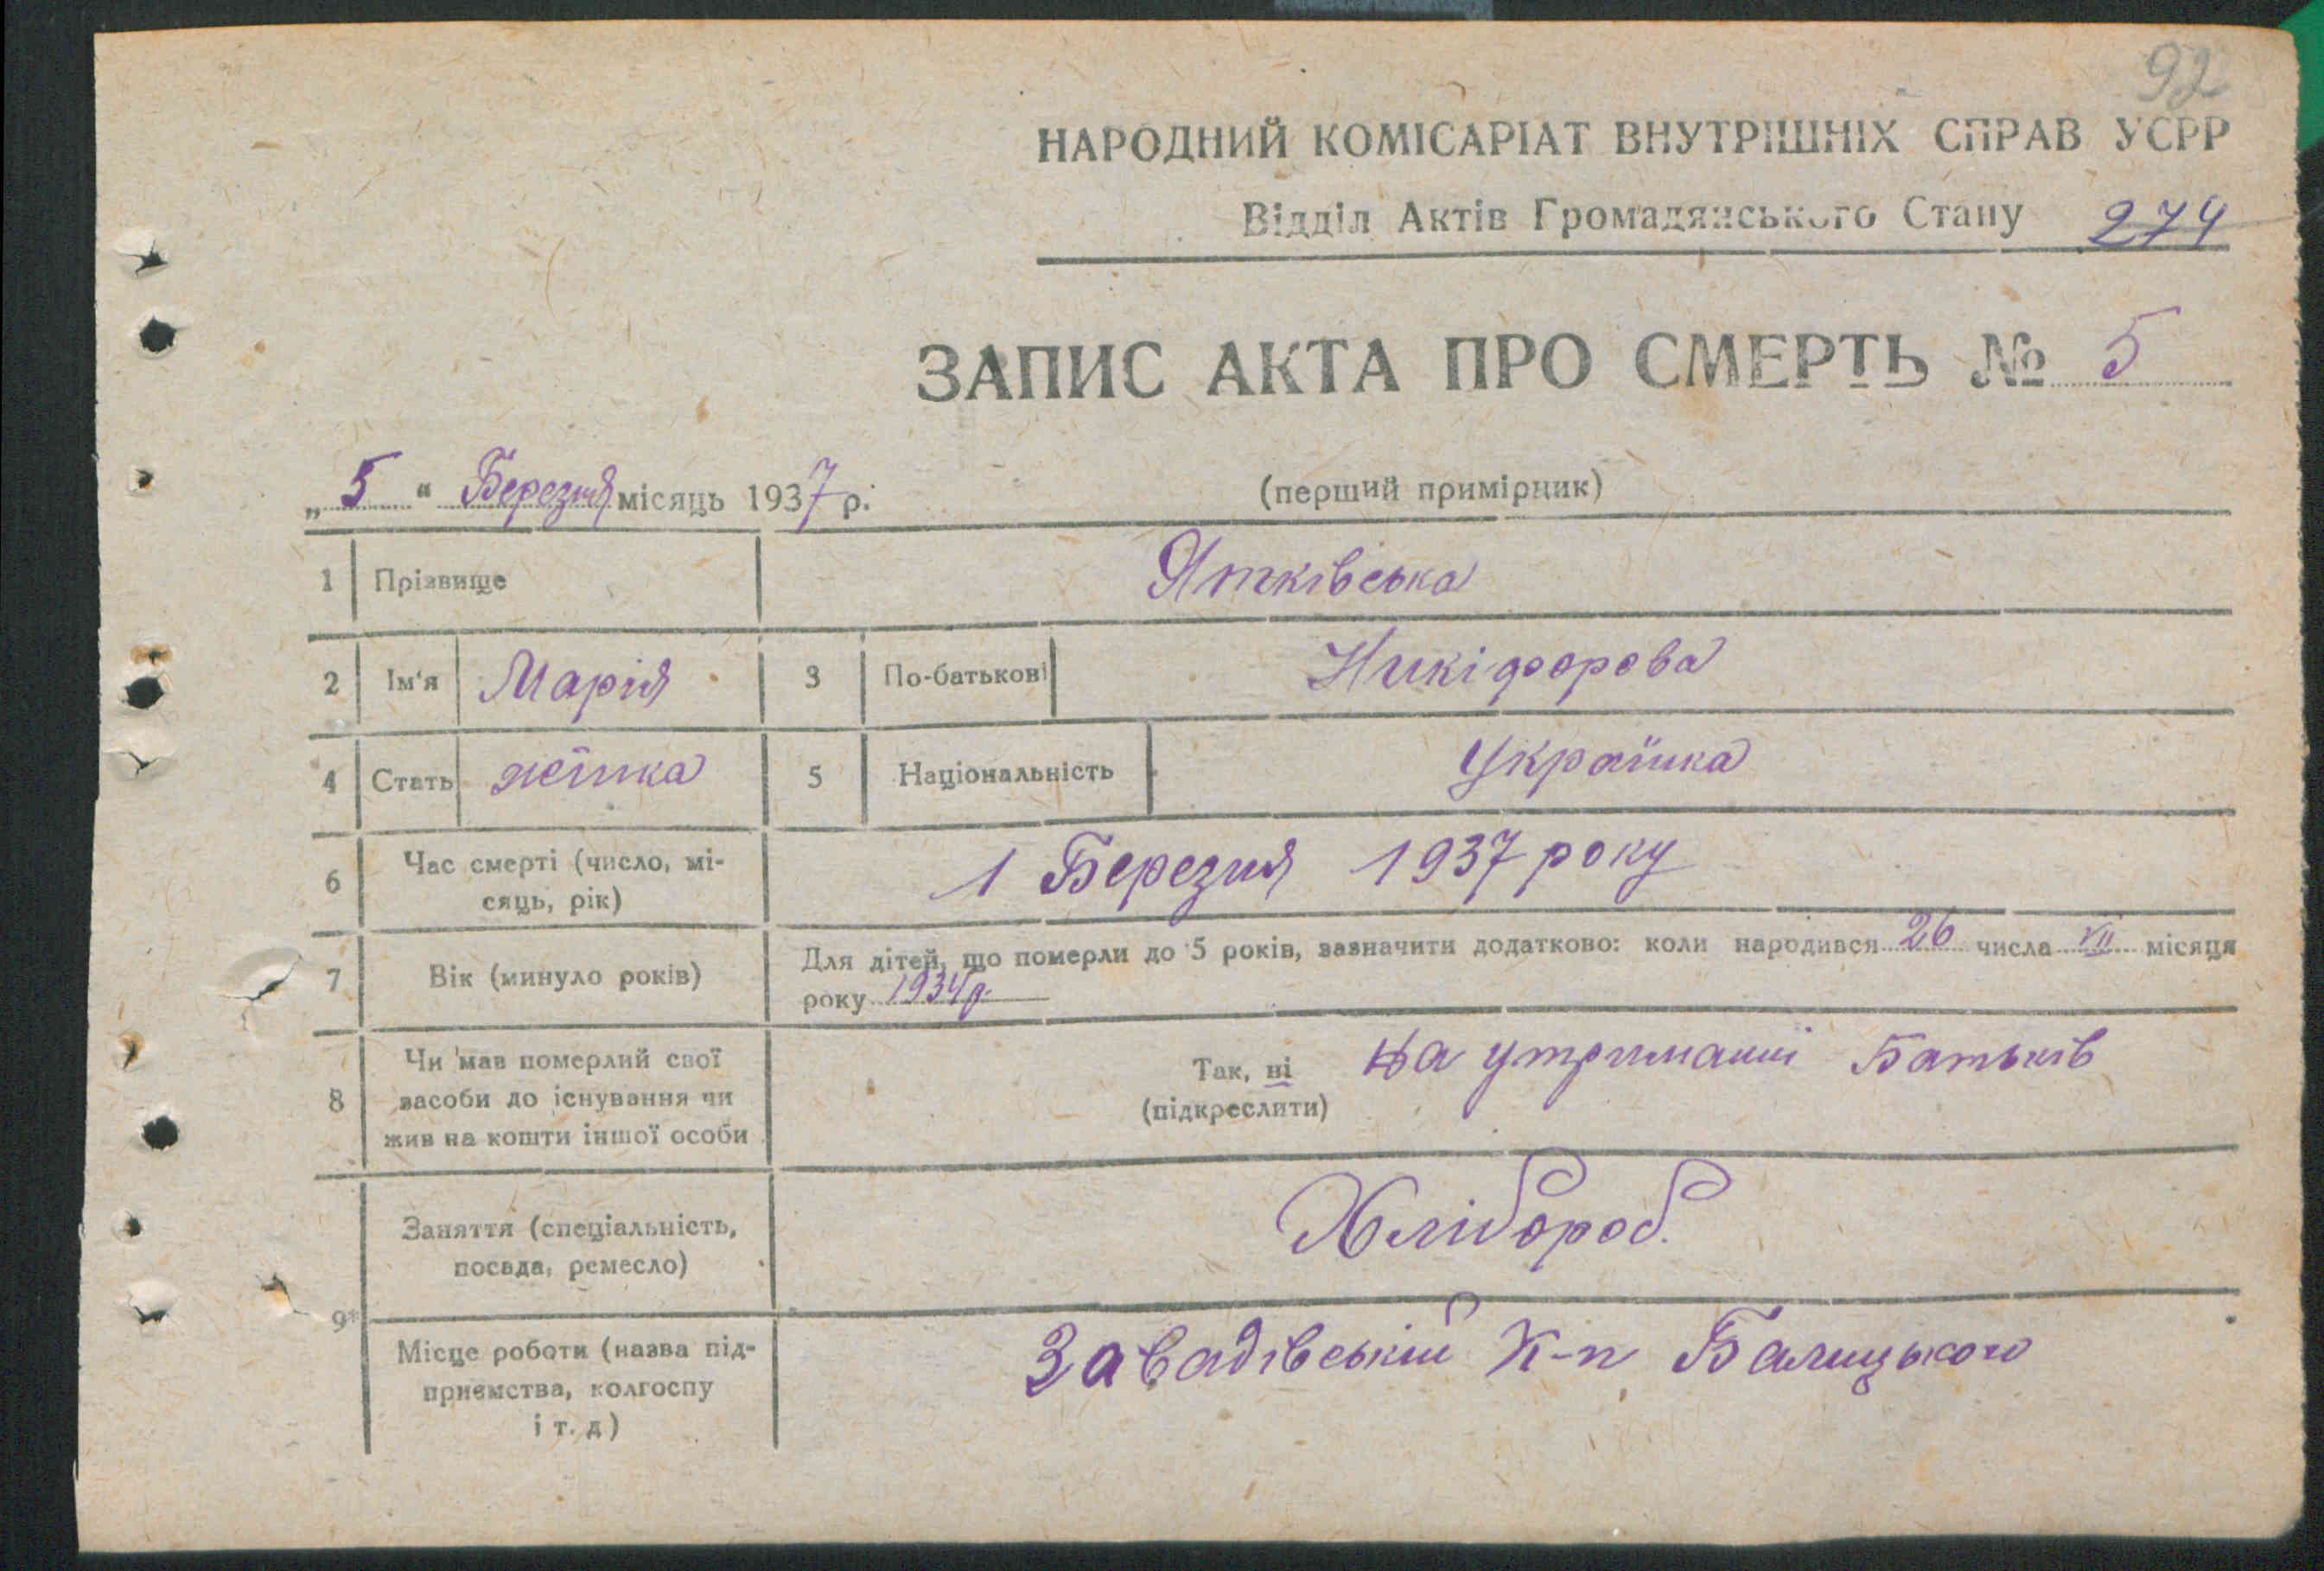 92
НАРОДНИЙ КОМІСАРІАТ ВНУТРІШНІХ СПРАВ УСРР
Відділ Актів Громадянського Стану 274
ЗАПИС АКТА ПРО СМЕРТЬ № 5
„ 5 “ Березня місяць 1937 р.
(перший примірник)
1 Прізвище Ятківська
2 Ім'я Марія 3 По-батькові Никіфорова
4 Стать жінка 5 Національність Українка
6 Час смерті (число, мі-
сяць, рік) 1 Березня 1937 року
7 Вік (минуло років) Для дітей, що померли до 5 років, зазначити додатково: коли народився 26 числа VII місяця
року 1934 р.
8 Чи мав померлий свої
засоби до існування чи
жив на кошти іншої особи
Так, ні На утриманні Батьків
(підкреслити)
9* Заняття (спеціальність,
посада, ремесло) Хлібороб.
Місце роботи (назва під-
приємства, колгоспу
і т. д) Завадівський К-п Балицького